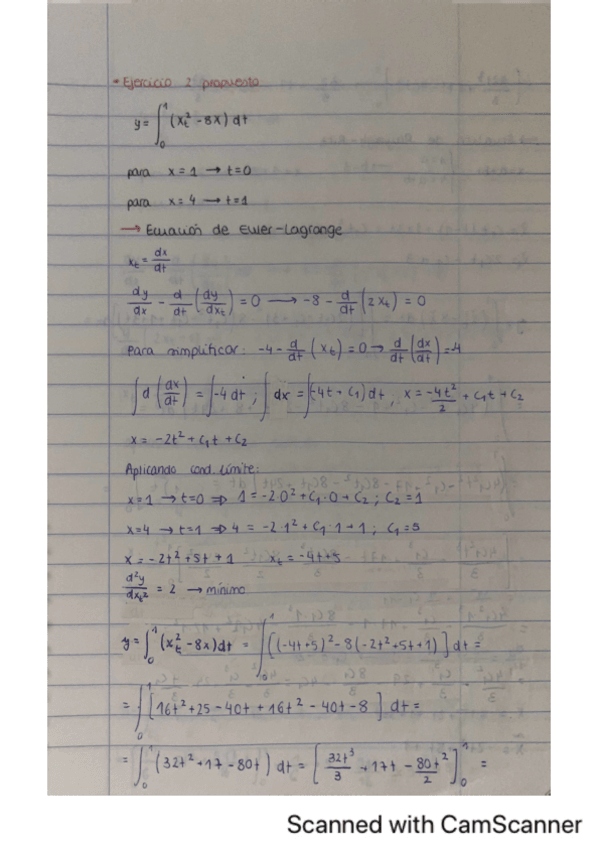 * Ejercicio 2 propuesto
y = ∫₀¹ (xₜ² - 8x) dt
para x = 1 → t=0
para x = 4 → t=1
→ Ecuación de Euler-Lagrange
xₜ = dx/dt
dy/dx - d/dt (dy/dxₜ) = 0 → -8 - d/dt (2xₜ) = 0
Para simplificar: -4 - d/dt (xₜ) = 0 → d/dt (dx/dt) = -4
∫ d (dx/dt) = ∫ -4 dt ; ∫ dx = ∫ (-4t + C₁) dt , x = -4t²/2 + C₁t + C₂
x = -2t² + C₁t + C₂
Aplicando cond. límite:
x=1 → t=0 ⇒ 1 = -2·0² + C₁·0 + C₂ ; C₂ = 1
x=4 → t=1 ⇒ 4 = -2·1² + C₁·1 + 1 ; C₁ = 5
x = -2t² + 5t + 1 xₜ = -4t + 5
d²y/dxₜ² = 2 → mínimo
y = ∫₀¹ (xₜ² - 8x) dt = ∫₀¹ [(-4t+5)² - 8(-2t² + 5t + 1)] dt =
= ∫₀¹ [16t² + 25 - 40t + 16t² - 40t - 8] dt =
= ∫₀¹ (32t² + 17 - 80t) dt = [32t³/3 + 17t - 80t²/2]₀¹ =
Scanned with CamScanner